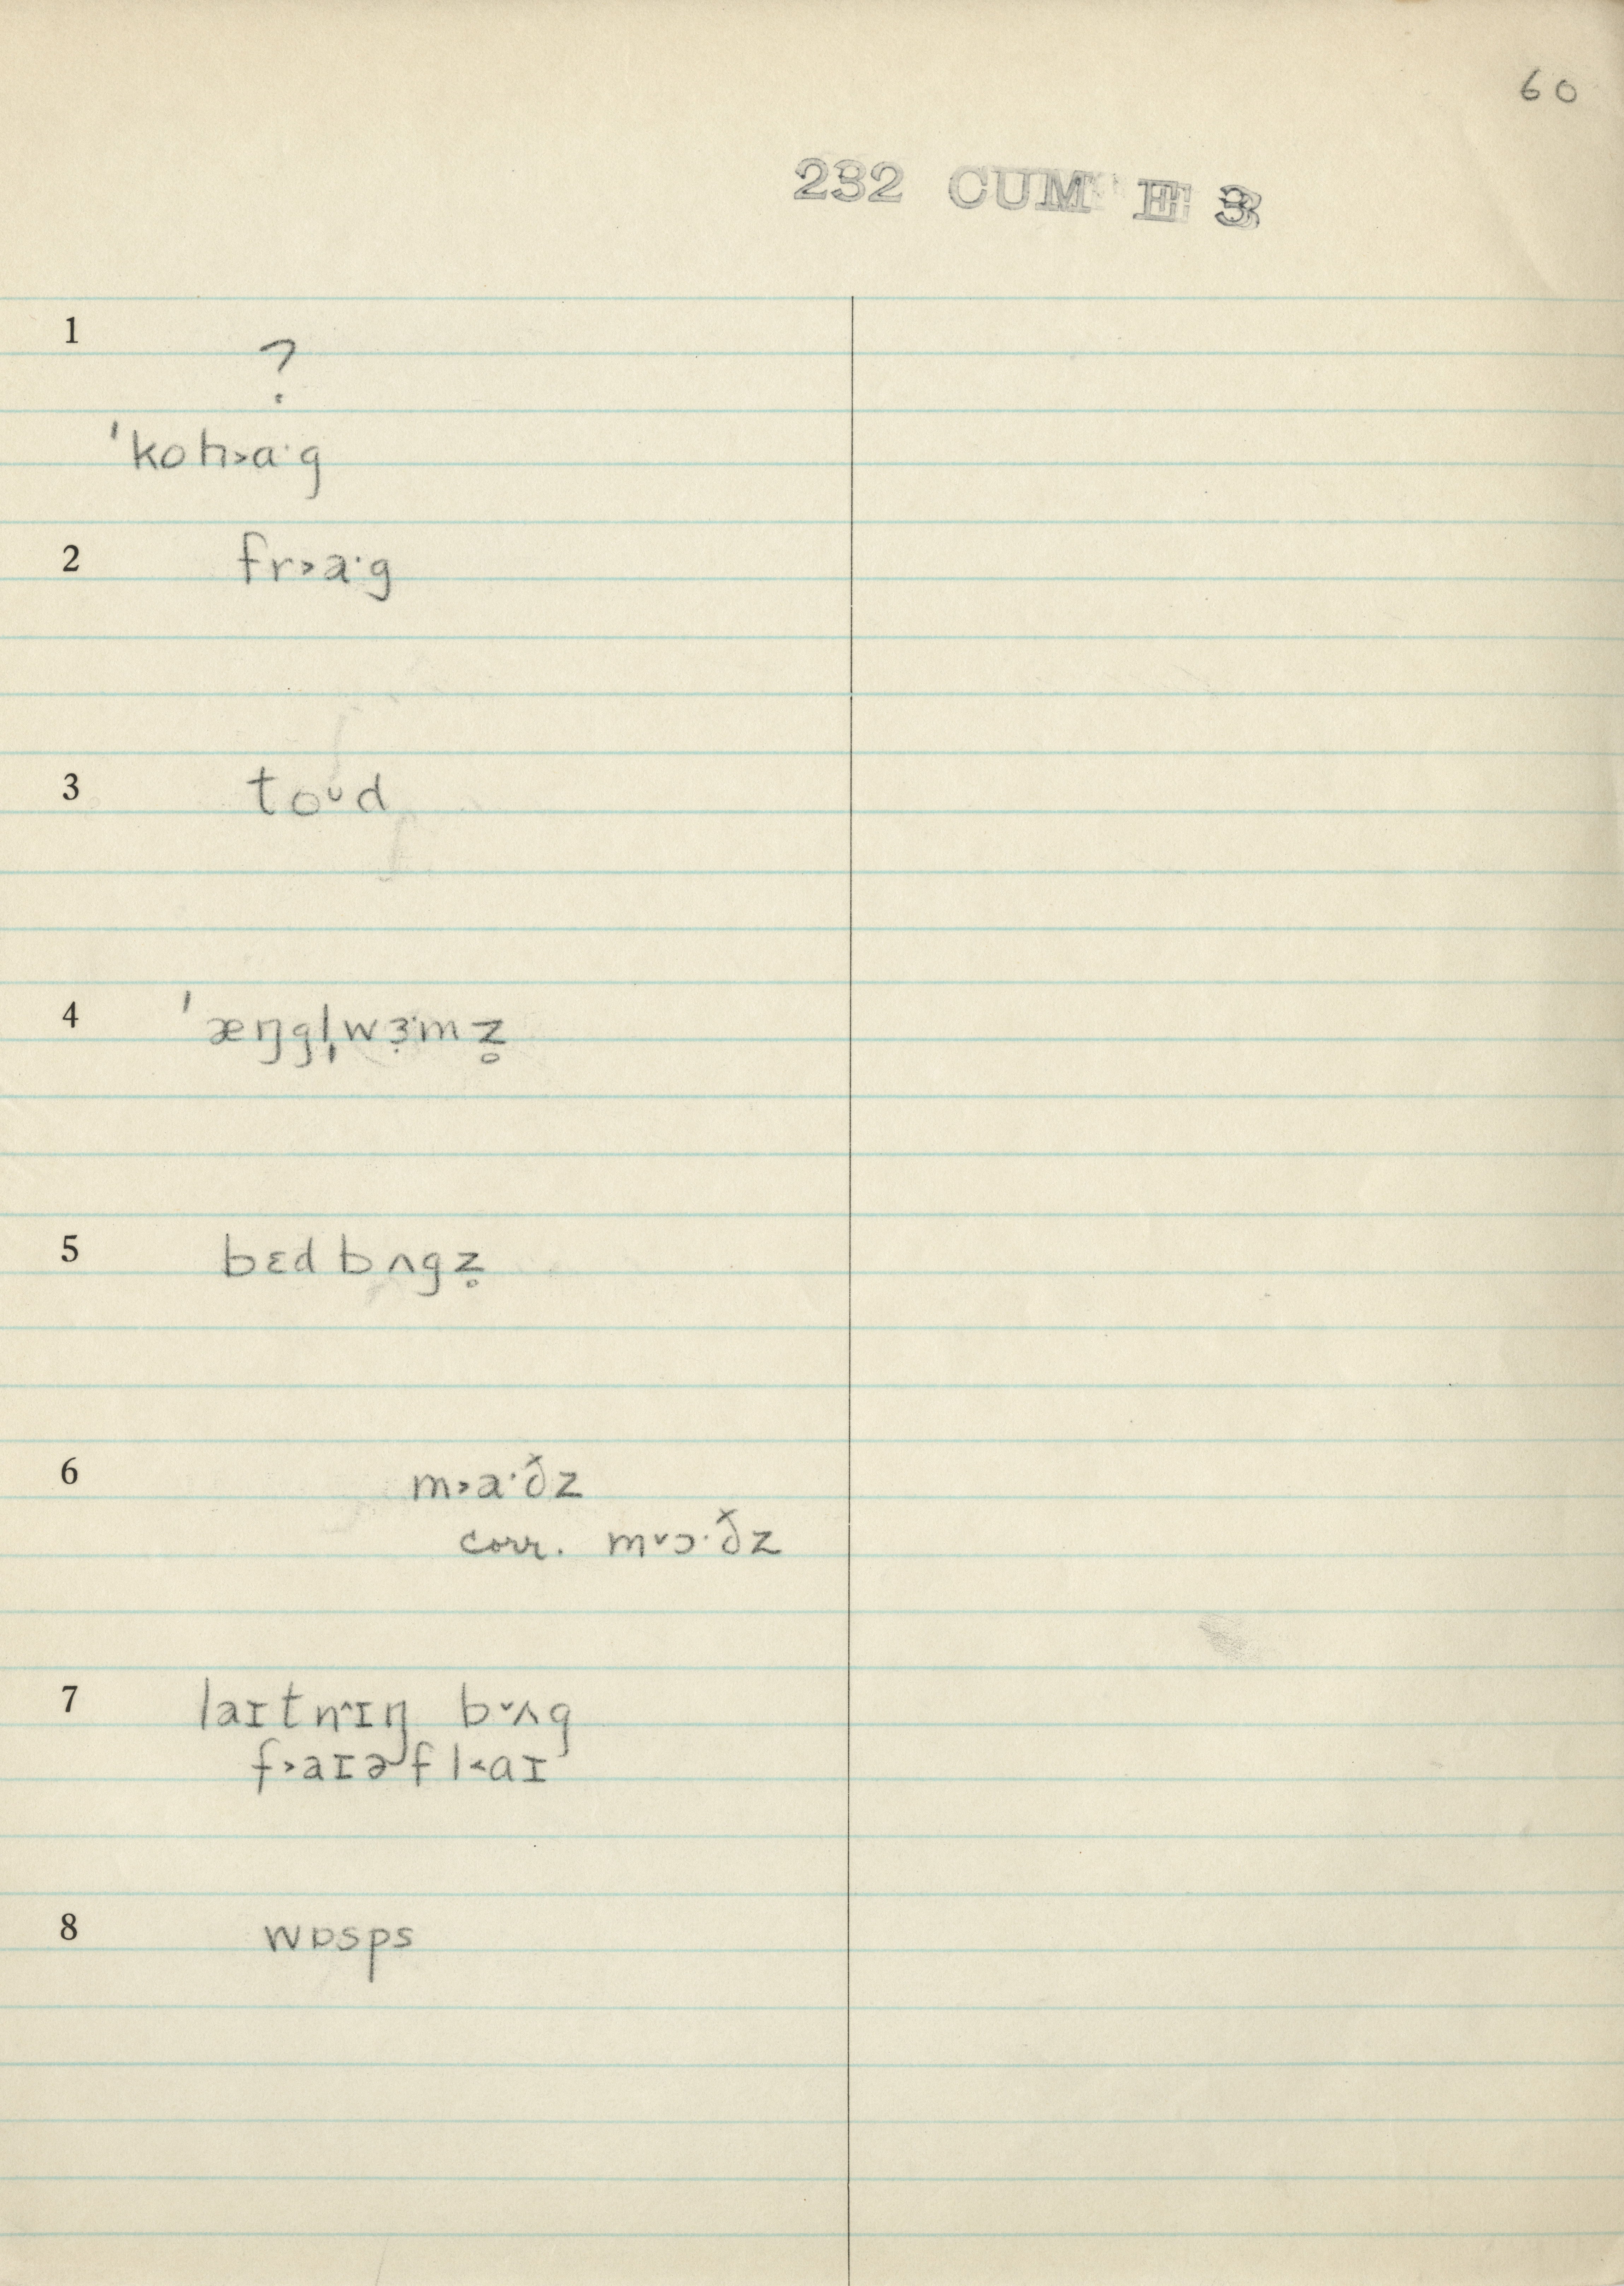 60
232 CUM E 3
1
?
ˈkoɦ˃ɑ·g
2 fr˃a·g
3 toᵕd
4 ˈæŋgl̩wɜ̣·mz̥
5 bɛd bʌgz̥
6 m˃a·ðz
corr. m˅ɔ·ðz
7 laɪtn˄ɪŋ b˅ʌg
f˃aɪɚfl˂ɑɪ
8 wɒsps